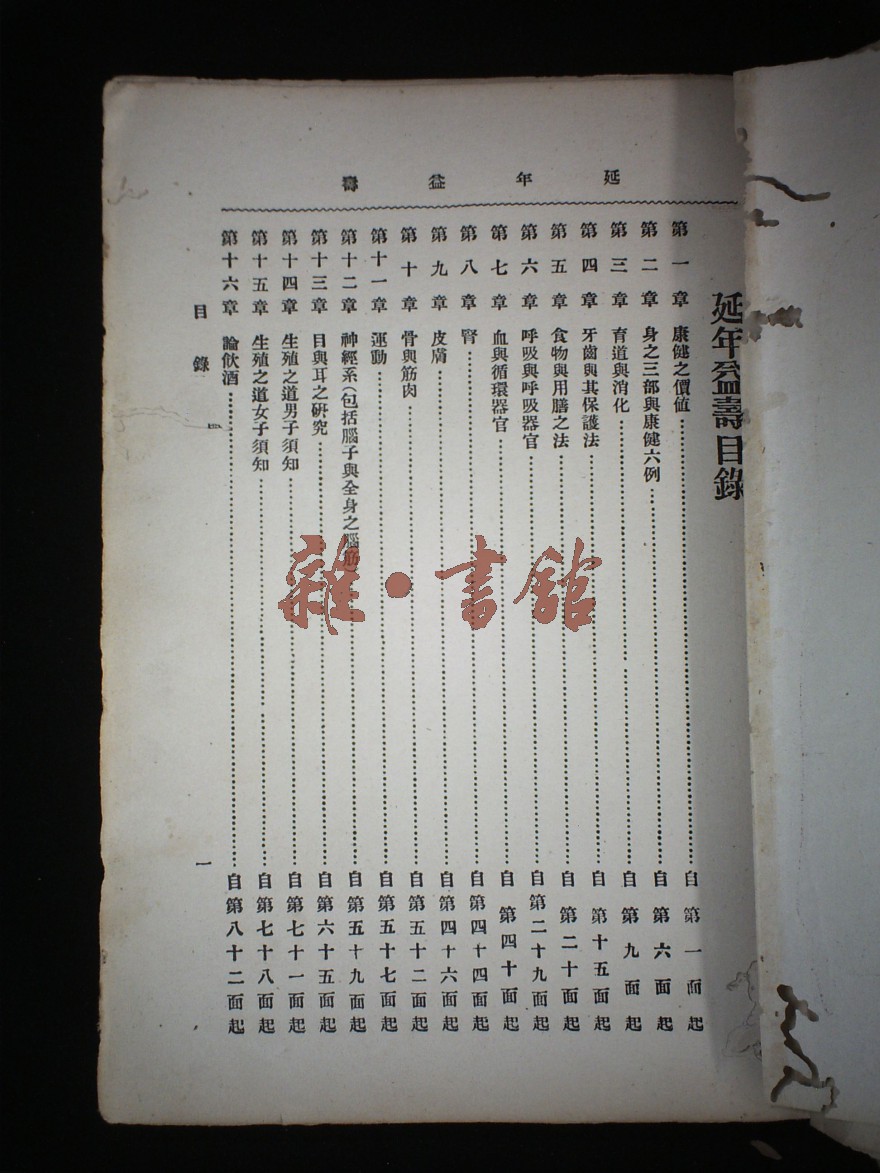 延年益壽
延年益壽目錄
第一章 康健之價值……自第一面起
第二章 身之三部與康健六例……自第六面起
第三章 育道與消化……自第九面起
第四章 牙齒與其保護法……自第十五面起
第五章 食物與用膳之法……自第二十面起
第六章 呼吸與呼吸器官……自第二十九面起
第七章 血與循環器官……自第四十面起
第八章 腎……自第四十四面起
第九章 皮膚……自第四十六面起
第十章 骨與筋肉……自第五十二面起
第十一章 運動……自第五十七面起
第十二章 神經系(包括腦子與全身之腦筋)……自第五十九面起
第十三章 目與耳之研究……自第六十五面起
第十四章 生殖之道男子須知……自第七十一面起
第十五章 生殖之道女子須知……自第七十八面起
第十六章 論飲酒……自第八十二面起
目錄 一
雜·書館